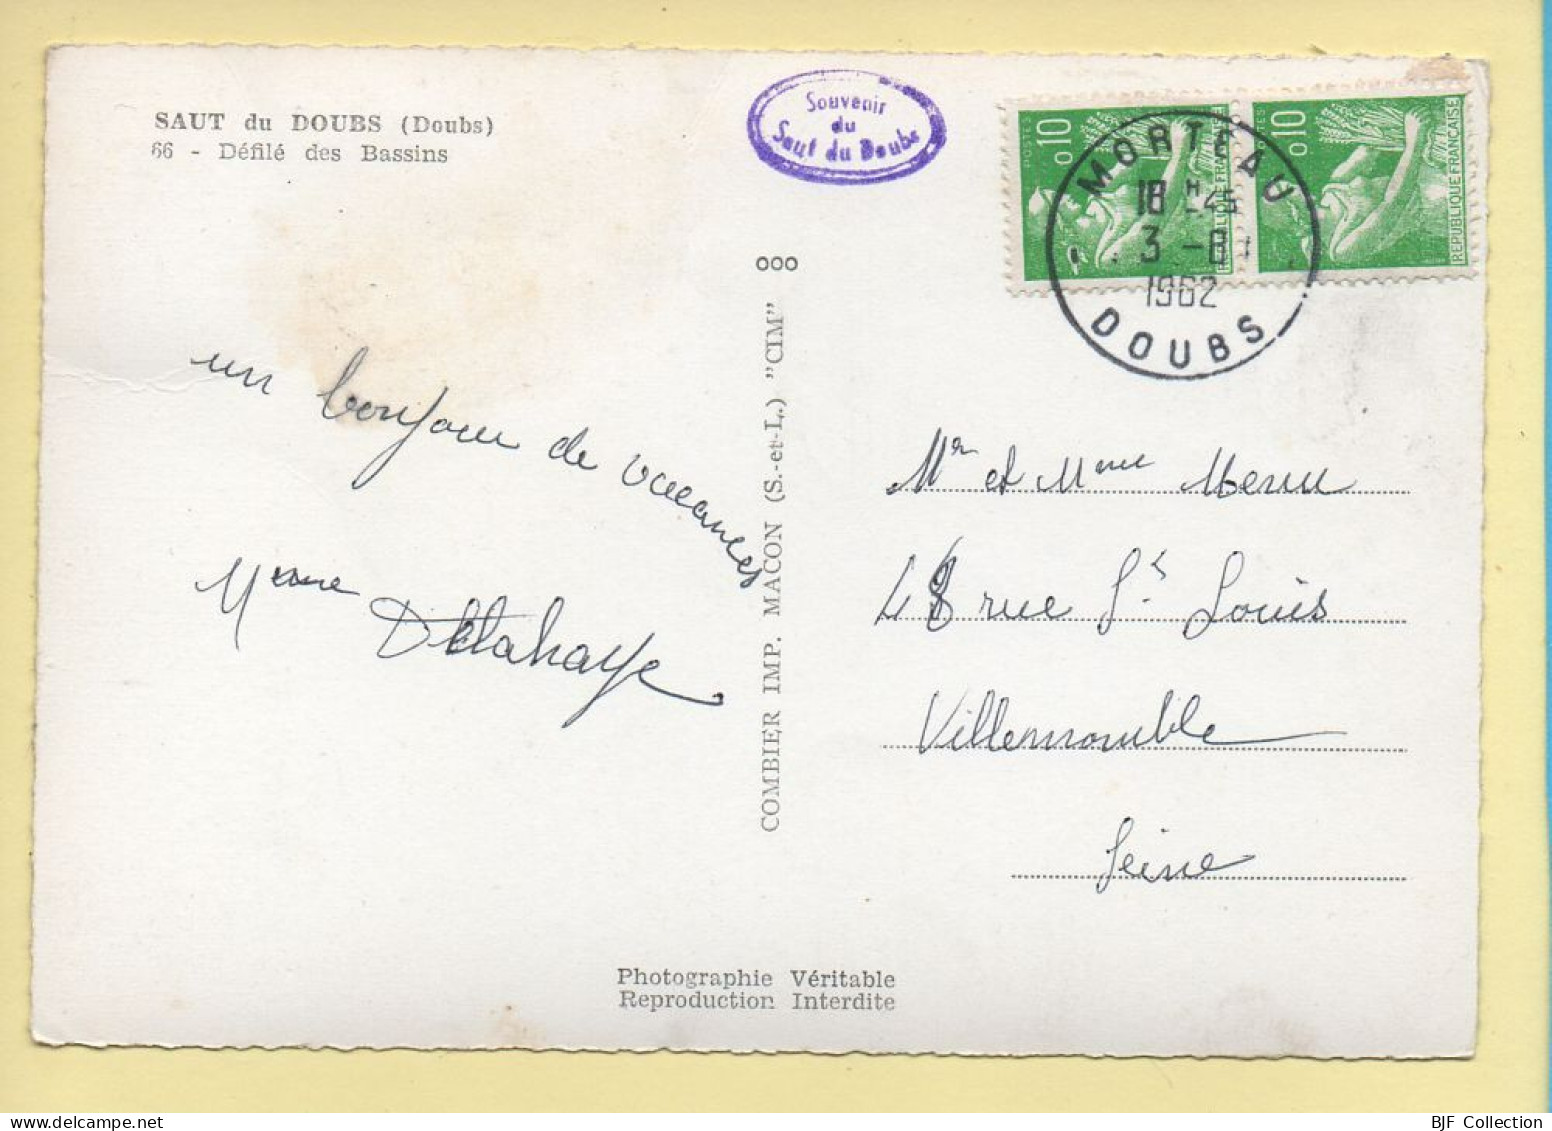 SAUT du DOUBS (Doubs)
66 - Défilé des Bassins
Souvenir
du
Saut du Doubs
POSTES
0,10
REPUBLIQUE FRANÇAISE
POSTES
0,10
REPUBLIQUE FRANÇAISE
MORTEAU
18 H 45
3 - 8
1962
DOUBS
un bonjour de vacances
Mme Delahaye
ooo
COMBIER IMP. MACON (S.-et-L.) "CIM"
Mr et Mme Menu
48 rue St Louis
Villemomble
Seine
Photographie Véritable
Reproduction Interdite
BJF Collection